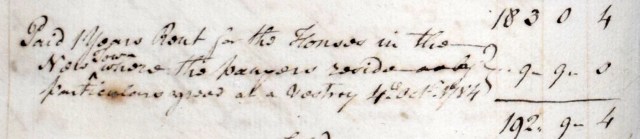 183 0 4
Paid 1 Years Rent for the Houses in the
Town
New where the paupers reside 9 - 9 - 0
particulars agreed at a Vestry 4th Octr 1784
192 9 - 4